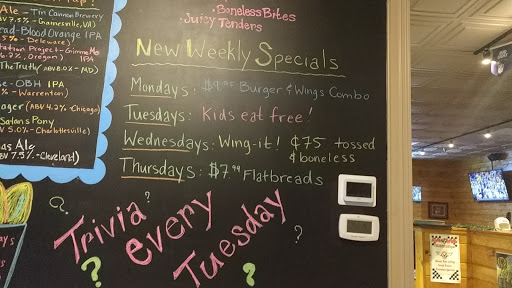 Boneless Bites
Juicy Tenders
New Weekly Specials
Mondays: $9.95 Burger & Wings Combo
Tuesdays: Kids eat free!
Wednesdays: Wing-it! ¢75 tossed
& boneless
Thursdays: $7.99 Flatbreads
Trivia
every
Tuesday
Ale - Tin Cannon Brewery
7.5% - Gainesville, VA)
Blood Orange IPA
% - Delaware)
Project - Grimm
%, Oregon) IPA
The Truth (ABV 8.0% - MD)
- OBH IPA
% - Warrenton)
ager (ABV 4.2% - Chicago)
Satans Pony
V 5.0% - Charlottesville)
as Ale
BV 7.5% - Cleveland)